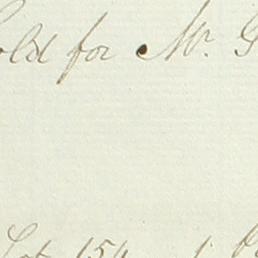 old for Mr. G
Lot 154